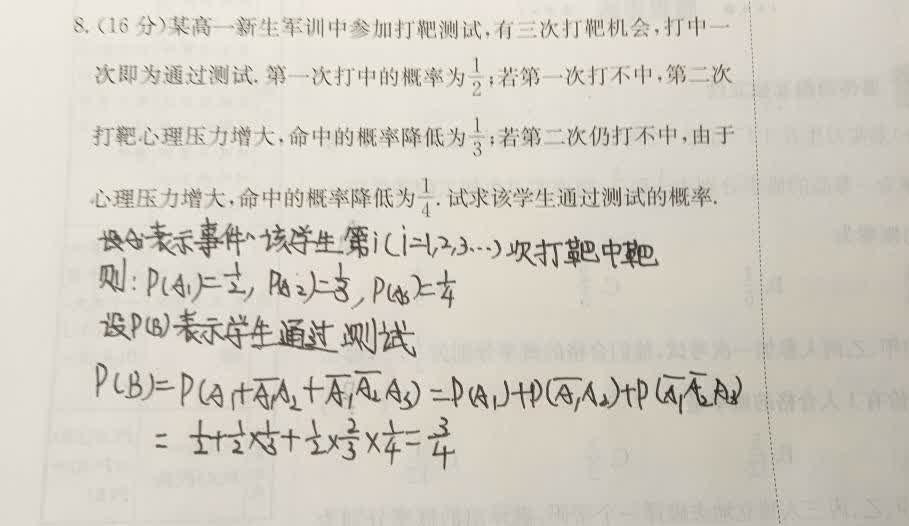 8. (16 分)某高一新生军训中参加打靶测试,有三次打靶机会,打中一
次即为通过测试. 第一次打中的概率为1/2;若第一次打不中,第二次
打靶心理压力增大,命中的概率降低为1/3;若第二次仍打不中,由于
心理压力增大,命中的概率降低为1/4. 试求该学生通过测试的概率.
表示事件、该学生第i(i=1,2,3…)次打靶中靶
则:P(A₁)=1/2, P(A₂)=1/3, P(A₃)=1/4
设P(B)表示学生通过测试
P(B)=P(A₁+A̅₁A₂+A̅₁A̅₂A₃)=P(A₁)+P(A̅₁A₂)+P(A̅₁A̅₂A₃)
=1/2+1/2×1/3+1/2×2/3×1/4=3/4